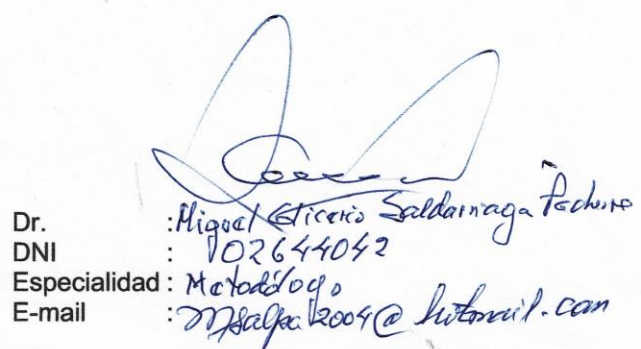 Dr. : Miguel Glicerio Saldarriaga Pacherre
DNI : 02644042
Especialidad : Metodólogo
E-mail : @hotmail.com